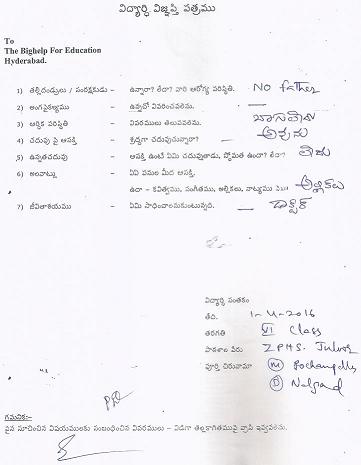 విద్యార్థి విజ్ఞప్తి పత్రము
To
The Bighelp For Education
Hyderabad.
1) తల్లిదండ్రులు / సంరక్షకుడు - ఉన్నారా? లేదా? వారి ఆరోగ్య పరిస్థితి. No father
2) అంగవైకల్యము - ఉన్నచో వివరించవలెను. —
3) ఆర్థిక పరిస్థితి - వివరములు తెలుపవలెను. బాగాలేదు
4) చదువు పై ఆసక్తి - శ్రద్ధగా చదువుచున్నారా? అవును
5) ఉన్నతచదువు - ఆసక్తి ఉంటే ఏమి చదువుతాడు, స్తోమత ఉందా? లేదా? లేదు
6) అలవాట్లు - ఏ ఏ పనుల మీద ఆసక్తి.
ఉదా - కవిత్వము, సంగీతము, అల్లికలు, నాట్యము మొ॥ అల్లికలు
7) జీవితాశయము - ఏమి సాధించాలనుకుంటున్నది. — డాక్టర్
విద్యార్థి సంతకం
తేది. 1-4-2016
తరగతి VI Class
పాఠశాల పేరు ZPHS. Julur
పూర్తి చిరునామా (M) Pochampally
(D) Nalgond
గమనిక:-
పైన సూచించిన విషయములకు సంబంధించిన వివరములు - విడిగా తెల్లకాగితముపై వ్రాసి ఇవ్వవలెను.